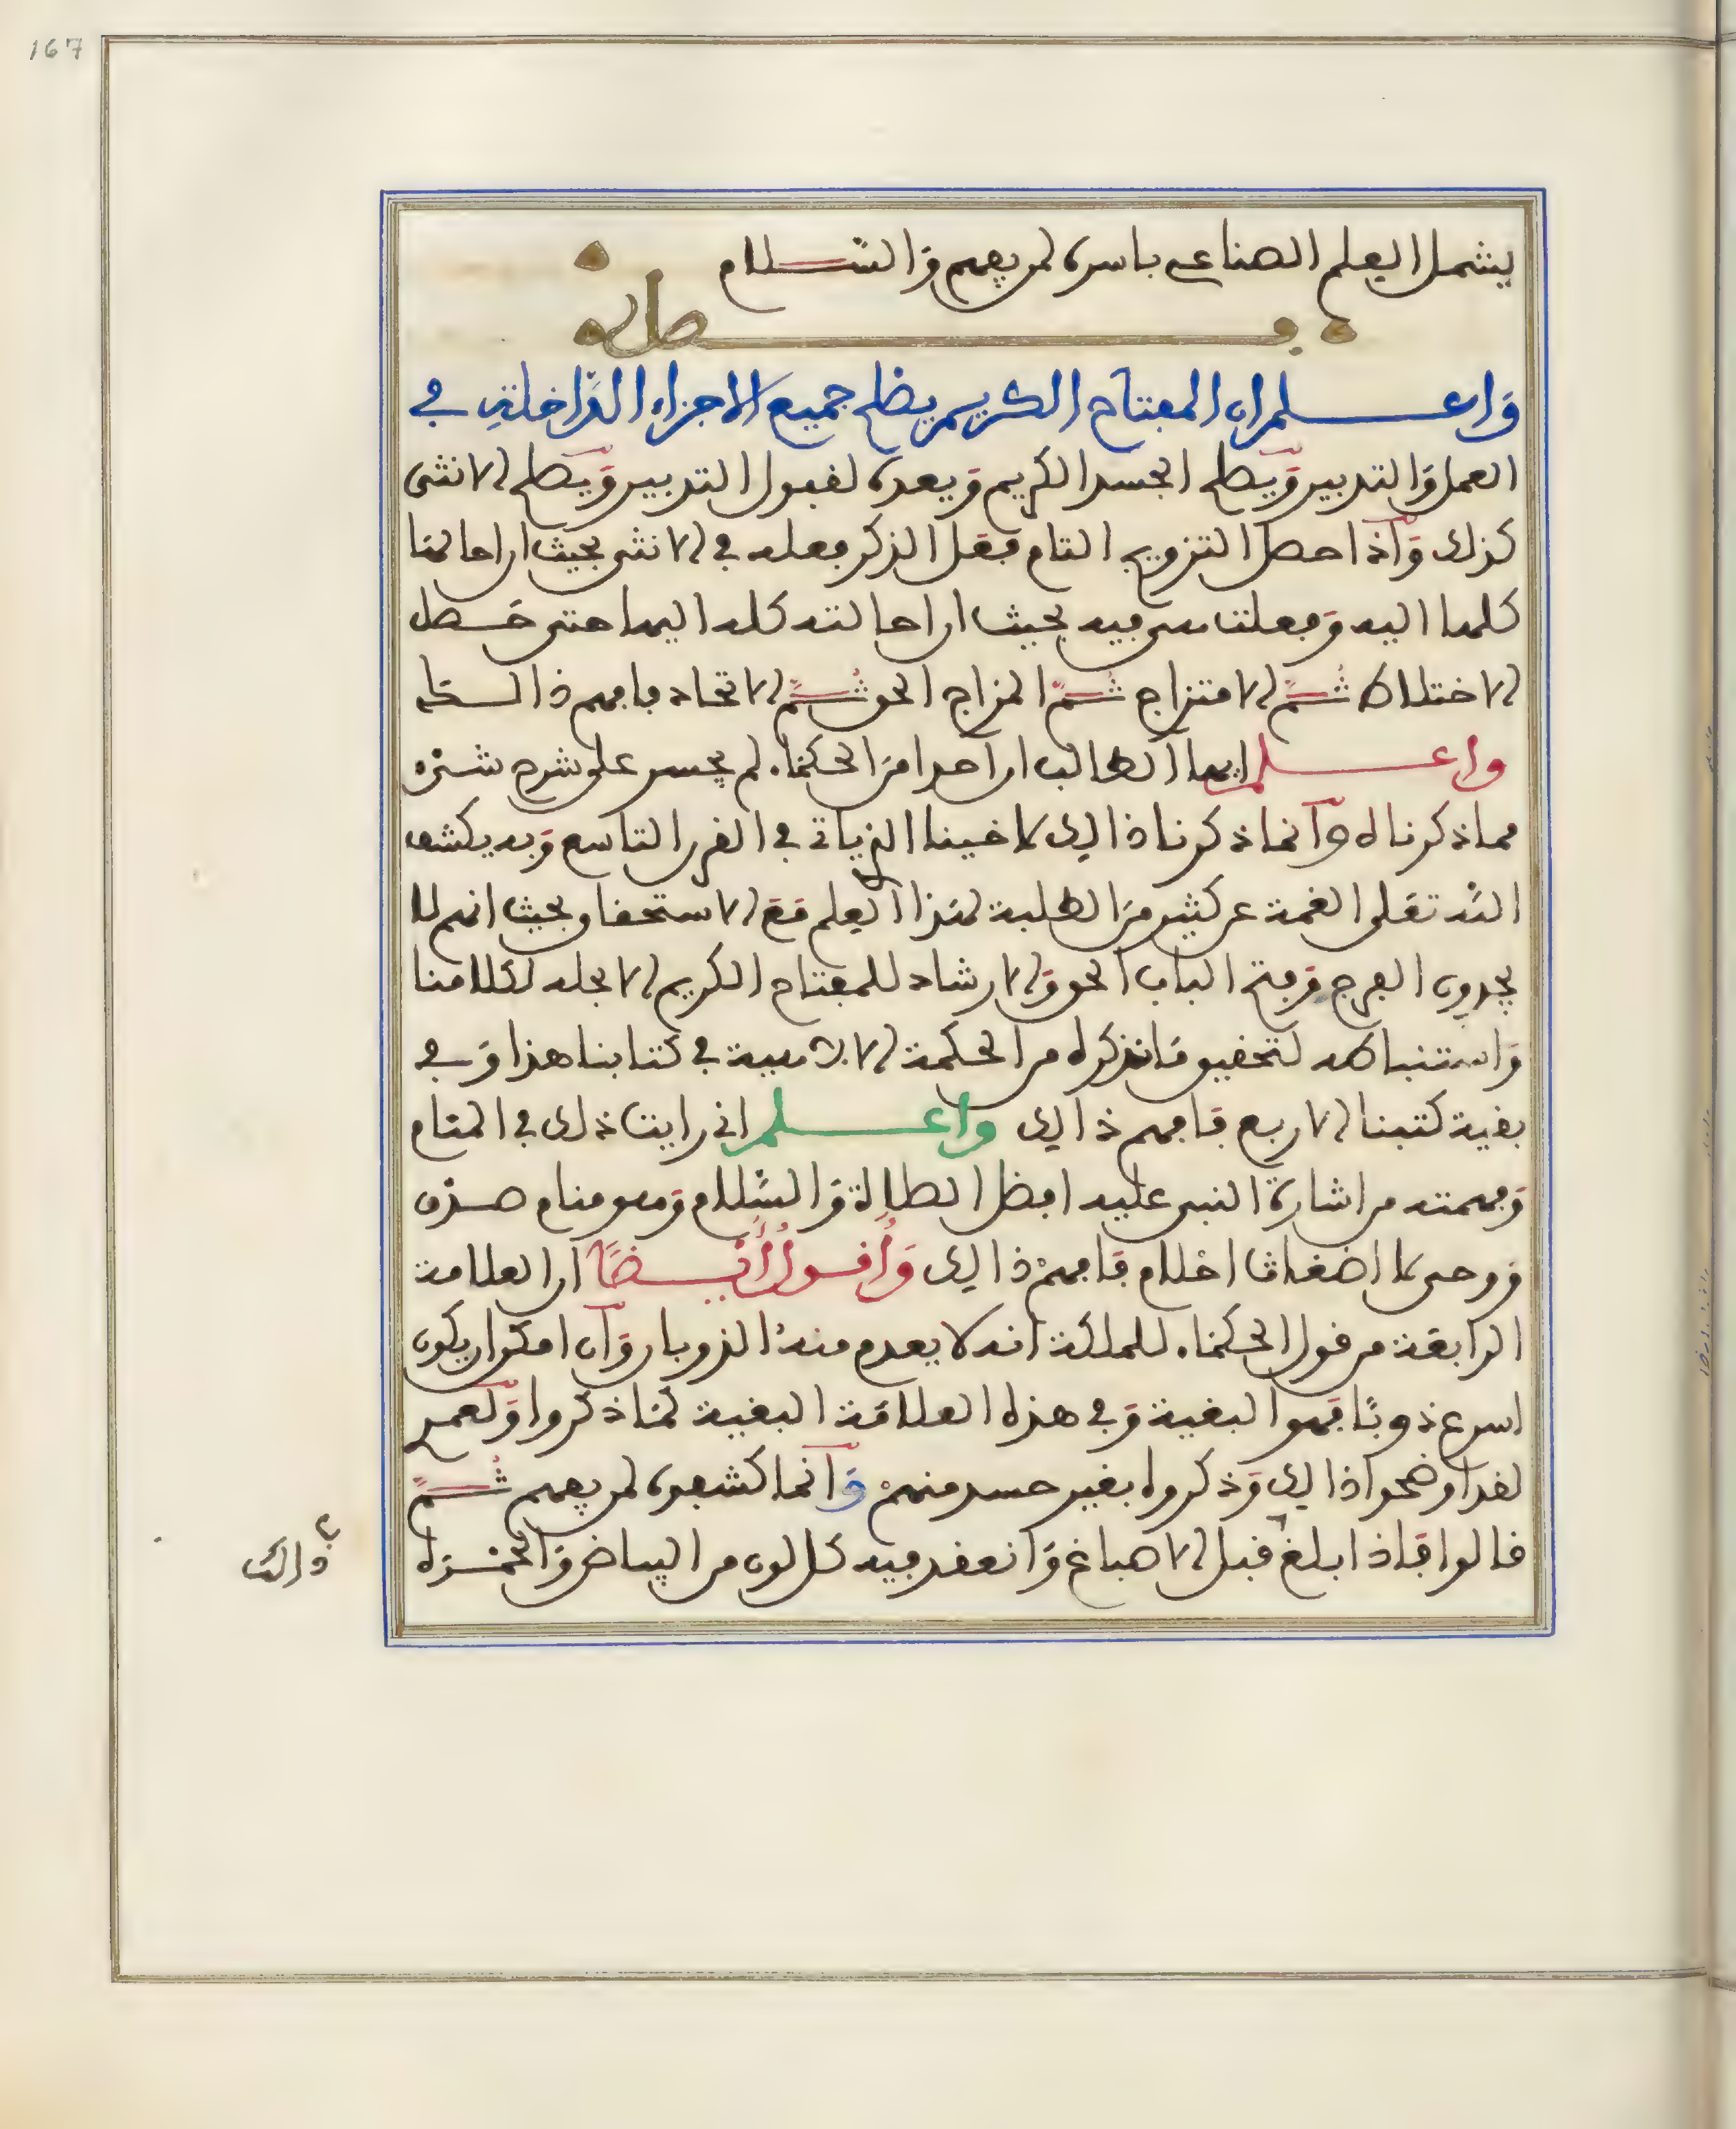 167
يشمل العلم الصناعي باسره لمن يفهم والسلام
فصل
واعلم ان المفتاح الكريم يصلح جميع الاجزاء الداخلة في
العمل والتدبير ويصلح الجسد الكريم ويعده لقبول التدبير ويصلح الانثى
كذلك واذا حصل التزويج التام فعل الذكر فعله في الانثى بحيث احالها
كلها اليه وفعلت هي فيه بحيث ان احالته كله اليها حتى حصل
الاختلاط ثم الامتزاج ثم المزاج الحق ثم الاتحاد فافهم ذالك
واعلم ايها الطالب ان احدا من الحكماء لم يجسر على شرح شيء
مما ذكرناه وانما ذكرنا ذالك لاخينا الذي ياتي في القرن التاسع وبه يكشف
الله تعلى الغمة عن كثير من الطلبة لهذا العلم مع الاستحقاق بحيث انهم لا
يجدون الفرج وفتح الباب الحق والارشاد للمفتاح الكريم الا بحله لكلامنا
واستنباطه لتحقيق ما نذكره من الحكمة الالاهية في كتابنا هذا وفي
بقية كتبنا الاربع فافهم ذالك واعلم اني رايت ذلك في المنام
وفهمته من اشارة النبي عليه افضل الصلاة والسلام وهو منام صدق
ووحي لا اضغاث احلام فافهم ذالك واقول ايضا ان العلامة
الرابعة من قول الحكماء للملكة انه لا يعدم منه الذوبان وان امكن ان يكون
اسرع ذوبا فهو البغية وفي هذه العلامة البغية لما ذكروا ولعمري
لقد اوضحوا ذالك وذكروه بغير حسد منهم وانما كشفوه لمن يفهم ثم
قالوا فاذا بلغ قبل الاصباغ وانعقد فيه كل لون من البياض والحمرة